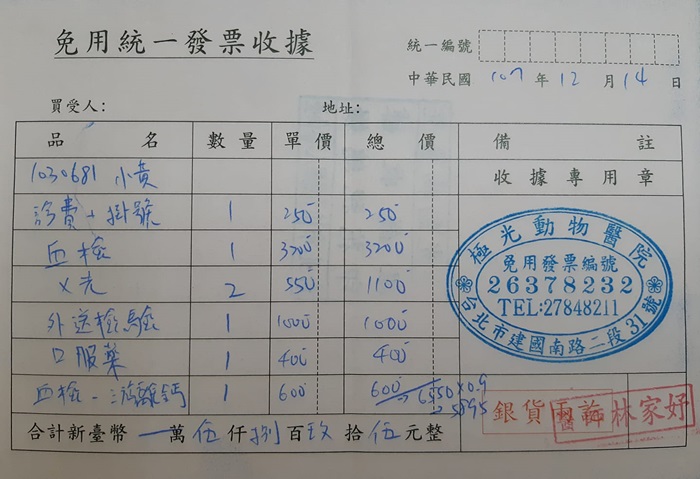 免用統一發票收據
統一編號
中華民國 107 年 12 月 14 日
買受人： 地址：
品名 數量 單價 總價 備註
1030681 小黃
收據專用章
診費+掛號 1 250 250
血檢 1 3200 3200
X光 2 550 1100
外送檢驗 1 1000 1000
口服藥 1 400 400
血檢-游離鈣 1 600 600
→ 6550×0.9
→ 5895
合計新臺幣 一萬伍仟捌百玖拾伍元整
極光動物醫院
免用發票編號
26378232
TEL:27848211
台北市建國南路二段31號
銀貨兩訖
林家妤